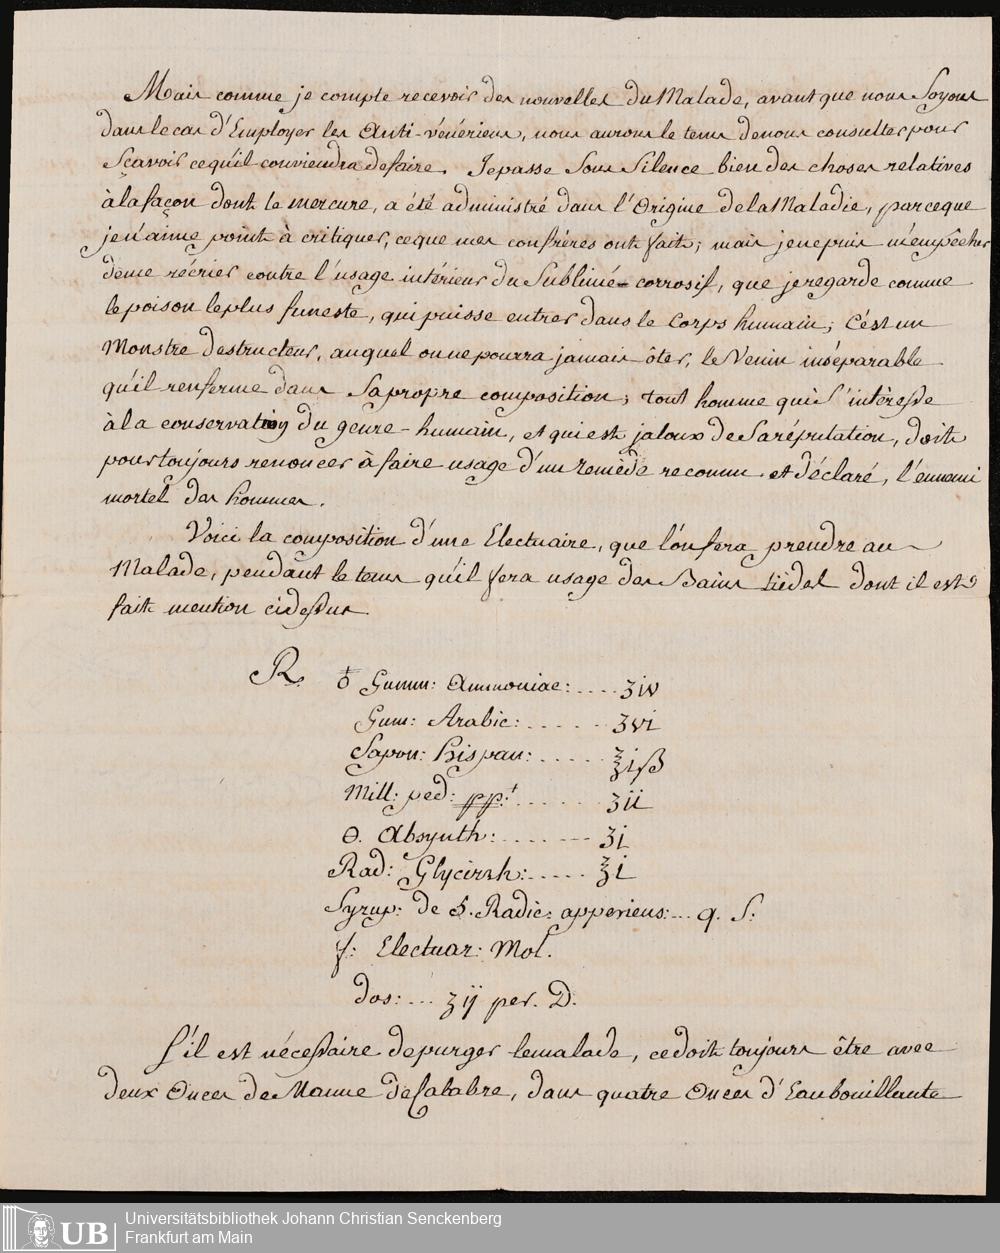 Mais comme je compte recevoir des nouvelles du Malade, avant que nous Soyons
dans le cas d'Employer les Anti-vénériens, nous aurons le tems de nous consulter pour
Sçavoir ce qu'il conviendra de faire. Je passe Sous Silence bien des choses relatives
à la façon dont le mercure, a été administré dans l'Origine de la Maladie, parce que
je n'aime point à critiquer, ce que mes confrères ont fait; mais je ne puis m'empêcher
de me récrier contre l'usage intérieur du Sublimé-corrosif, que je regarde comme
le poison le plus funeste, qui puisse entrer dans le Corps humain; C'est un
Monstre destructeur, auquel on ne pourra jamais ôter, le Venin inséparable
qu'il renferme dans Sa propre composition; tout homme qui S'intèresse
à la conservation du genre-humain, et qui est jaloux de Sa réputation, doit
pour toujours renoncer à faire usage d'un remède reconnu et déclaré, l'ennemi
mortel des hommes.
Voici la composition d'une Electuaire, que l'on fera prendre au
Malade, pendant le tems qu'il fera usage des Bains tièdes dont il est
fait mention cidessus
R. ♁ Gumm: Ammoniac: .... ʒiv
Gum: Arabic: ....... ʒvi
Sapon: hispan: ..... ℥iß
Mill: ped: pp.t ...... ʒii
Θ. Absynth: ....---- ʒi
Rad: Glycirrh: ..... ℥i
Syrup: de 5. Radic: apperiens: ... q. S.
f: Electuar: Mol.
dos: ... ʒij per. D.
S'il est nécessaire de purger le malade, ce doit toujours être avec
deux Onces de Manne de Calabre, dans quatre Onces d'Eau bouillante
Universitätsbibliothek Johann Christian Senckenberg
Frankfurt am Main
UB